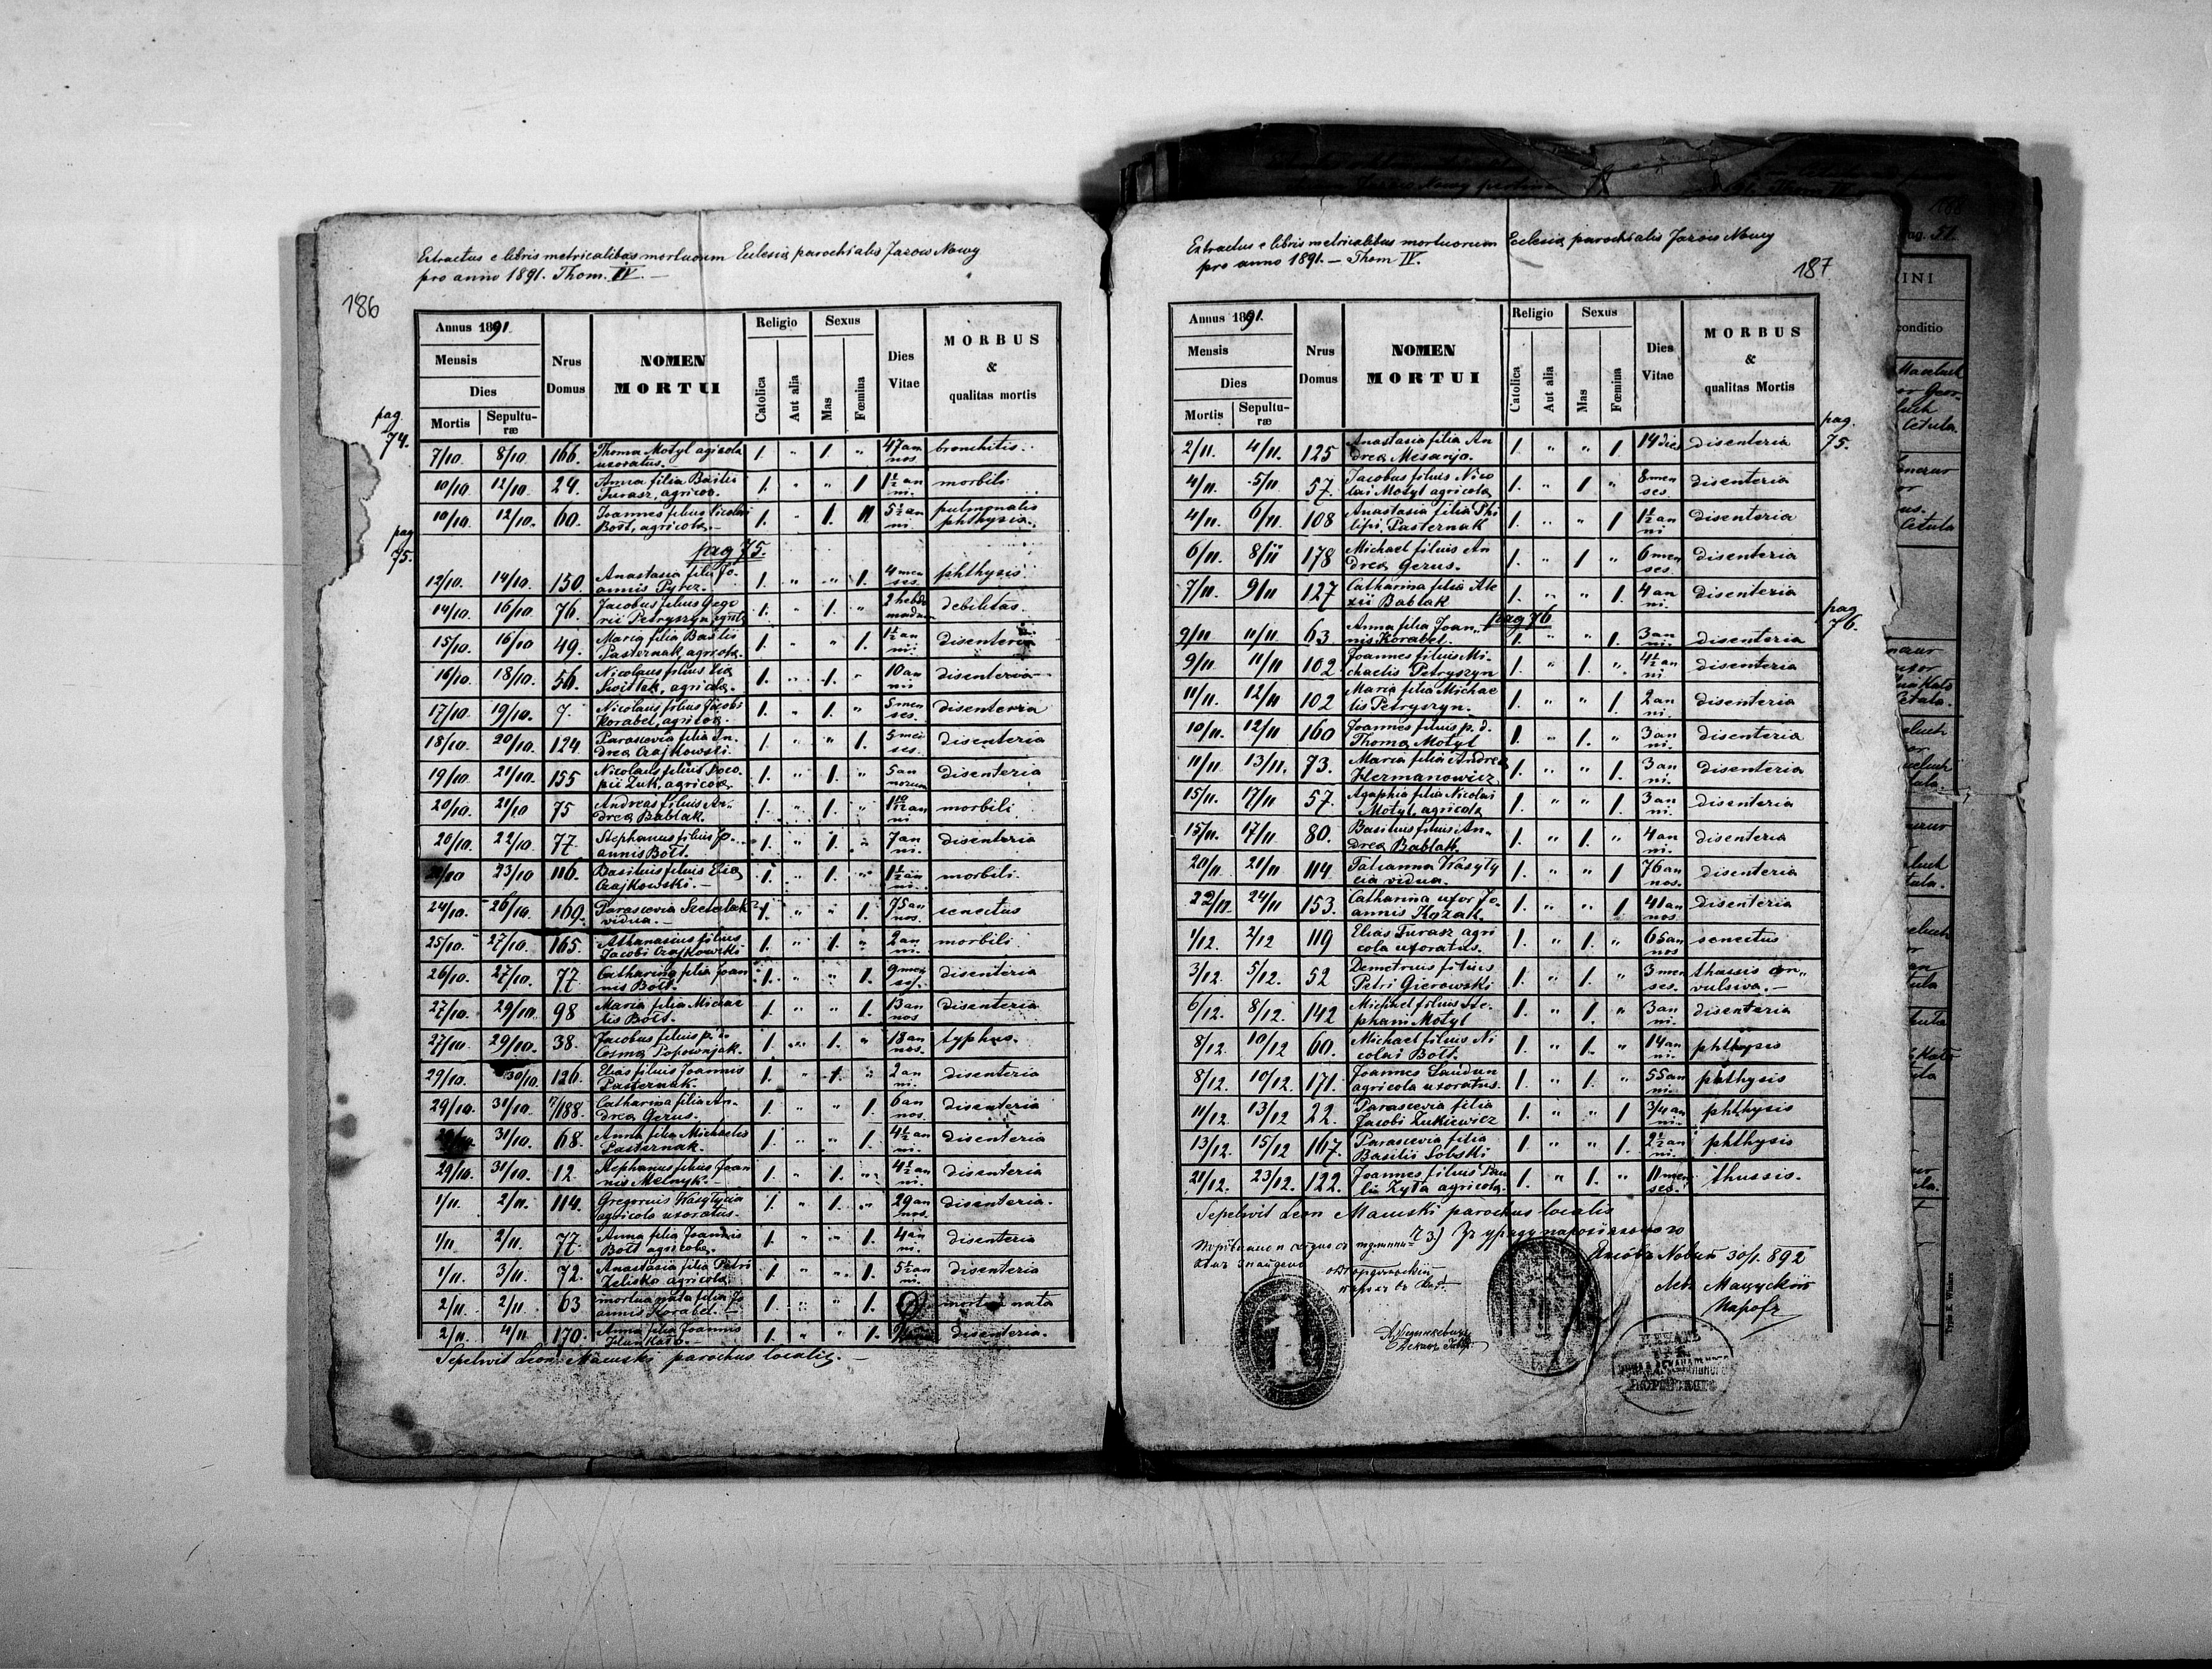 Extractus e libris metricalibus mortuorum Eclesia parochialis Jazow Nowy
pro anno 1891. Thom. IV. —
186
Annus 1891.
Mensis
Dies
Mortis
Sepulturæ
Nrus Domus
NOMEN MORTUI
Religio
Catolica
Aut alia
Sexus
Mas
Fœmina
Dies Vitae
MORBUS & qualitas mortis
pag. 74.
7/10 8/10 166. Thoma Motyl agricola uxoratus. — 1. " 1. " 47 annos bronchitis.
10/10 12/10. 24. Anna filia Basilii Turasz, agricol. 1. " " 1 1½ anni morbili
10/10 12/10. 60. Joannes filius Nicolai Bott, agricola. — 1. 1. 5½ anni pulmonalis phthysis.
pag 75.
pag 75.
12/10. 14/10. 150. Anastasia filia Joannis Pyrcz. 1. " " 1. 4 menses. phthysis.
14/10. 16/10 76. Jacobus filius Gregorii Petryszyn 1. " 1. " 2 hebdomadum debilitas.
15/10. 16/10 49. Maria filia Basilii Pasternak, agricola. 1. " " 1. 1½ anni disenteria
16/10. 18/10. 56. Nicolaus filius Elia agricola. 1. " 1. " 10 anni disenteria
17/10. 19/10. 7. Nicolaus filius Jacobi Korabel, agricola. 1. " 1. " 5 menses. disenteria
18/10. 20/10. 124. Parascevia filia Andrea Czajkowski 1. " " 1. 5 menses. disenteria
19/10. 21/10. 155 Nicolaus filius Procopii Zuk, agricola. 1. " 1. " 5 annorum disenteria
20/10. 21/10 75 Andreas filius Andrea Bablak. 1. " 1. " 1 10/12 anni morbili
20/10. 22/10. 77 Stephanus filius Joannis Bott. 1. " 1. " 7 anni. disenteria
23/10 116. Basilius filius Elia Czajkowski. — 1. " 1. " 1½ anni. morbili
24/10. 26/10. 169. Parascevia vidua. — 1. " " 1. 75 annos. senectus
25/10. 27/10. 165. Athanasius filius Jacobi Czajkowski 1. " 1. " 2 anni morbili
26/10. 27/10. 77 Catharina filia Joannis Bott. 1. " " 1. 9 menses. disenteria
27/10. 29/10. 98 Maria filia Michaelis Bott. 1. " " 1. 13 annos disenteria
27/10 29/10. 38. Jacobus filius p.d. Cosma Popownjak. 1. " 1. " 18 annos. typhus.
29/10. 30/10. 126. Elias filius Joannis Pasternak. 1. " 1. " 2 anni. disenteria
29/10. 31/10. 188. Catharina filia Andrea Gerus. 1. " " 1. 6 annos. disenteria
31/10. 68. Anna filia Michaelis Pasternak. 1. " " 1. 4½ anni. disenteria
29/10. 31/10. 12. Stephanus filius Joannis Melnyk. — 1. " 1. " 4½ anni. disenteria
1/11 2/11. 114. Gregorius Wasylycia agricola uxoratus. 1. " 1. " 29 annos. disenteria.
1/11 2/11. 77. Anna filia Joannis Bott agricola. 1. " " 1. 4 anni. disenteria
1/11. 3/11. 72. Anastasia filia Petri Zelisko agricola 1. " " 1. 5½ anni. disenteria
2/11. 2/11. 63 mortua nata filia Joannis Korabel. — 1. " " 1. mortua nata
2/11. 4/11. 170. Anna filia Joannis 1. " " 1. disenteria.
Sepelivit Leon Macuski parochus localis. —
Extractus e libris metricalibus mortuorum Eclesia parochialis Jazow Nowy
pro anno 1891. — Thom IV.
187
Annus 1891.
Mensis
Dies
Mortis
Sepulturæ
Nrus Domus
NOMEN MORTUI
Religio
Catolica
Aut alia
Sexus
Mas
Fœmina
Dies Vitae
MORBUS & qualitas Mortis
pag. 75.
2/11. 4/11. 125 Anastasia filia Andrea Mesanjo. 1. " " 1. 14 dies disenteria
4/11. 5/11 57. Jacobus filius Nicolai Motyl agricola 1. " 1 " 8 menses. disenteria
4/11. 6/11 108 Anastasia filia Philipi Pasternak 1. " " 1 1½ anni disenteria
6/11. 8/11 178 Michael filius Andrea Gerus. 1. " 1 " 6 menses. disenteria
7/11. 9/11 127 Catharina filia Alexii Bablak 1. " " 1. 4 anni. disenteria
pag 76
pag 76.
9/11 11/11. 63 Anna filia Joannis Korabel. 1. " " 1. 3 anni. disenteria
9/11 11/11 102 Joannes filius Michaelis Petryszyn 1. " 1. " 4½ anni disenteria
11/11. 12/11 102 Maria filia Michaelis Petryszyn. 1. " " 1. 2 anni. disenteria
10/11. 12/11 160 Joannes filius p.d. Thoma Motyl 1. " 1. " 3 anni. disenteria
11/11 13/11. 73. Maria filia Andrea Hermanowicz 1. " " 1. 3 anni. disenteria
15/11. 17/11 57. Agaphia filia Nicolai Motyl, agricola 1. " " 1. 3 anni. disenteria
15/11. 17/11 80. Basilius filius Andrea Bablak. 1. " 1. " 4 anni. disenteria
20/11 21/11 114 Tatianna Wasylycia vidua. 1. " " 1 76 annos. disenteria
22/11 24/11 153. Catharina uxor Joannis Kozak. 1. " " 1. 41 annos. disenteria
1/12. 2/12 119 Elias Turasz agricola uxoratus. 1. " 1. " 65 annos senectus
3/12. 5/12. 52 Demetrius filius Petri Gierowski 1. " 1. " 3 menses. thussis convulsiva. —
6/12. 8/12. 142 Michael filius Stephani Motyl 1. " 1. " 3 anni. disenteria
8/12. 10/12 60. Michael filius Nicolai Bott. 1. " 1. " 14 anni. phthysis
8/12. 10/12. 171. Joannes Laudun agricola uxoratus. 1. " 1. " 55 anni. phthysis
11/12. 13/12 22. Parascevia filia Jacobi Zukiewicz 1. " " 1 3/4 anni. phthysis
13/12. 15/12 167. Parascevia filia Basilii Sobski 1. " " 1. 2½ anni. phthysis
21/12. 23/12. 122. Joannes filius Pauli Zyta agricola. 1. " 1. " 11 menses. thussis.
Sepelivit Leon Macuski parochus localis
30/1. 892